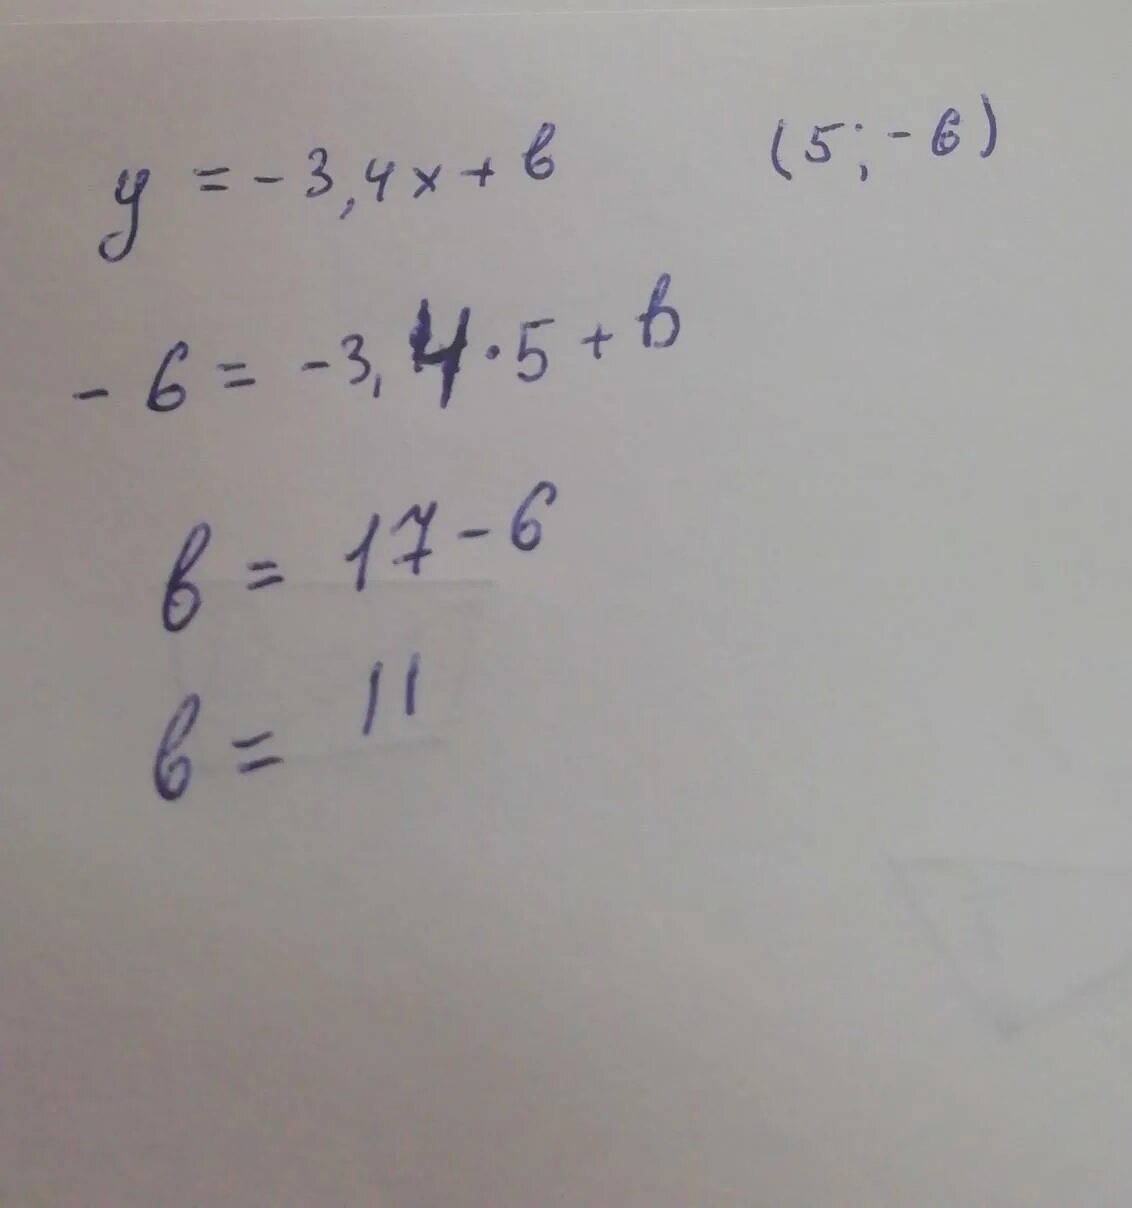 y = -3,4x + b (5; -6)
- 6 = -3,4·5 + b
b = 17 - 6
b = 11